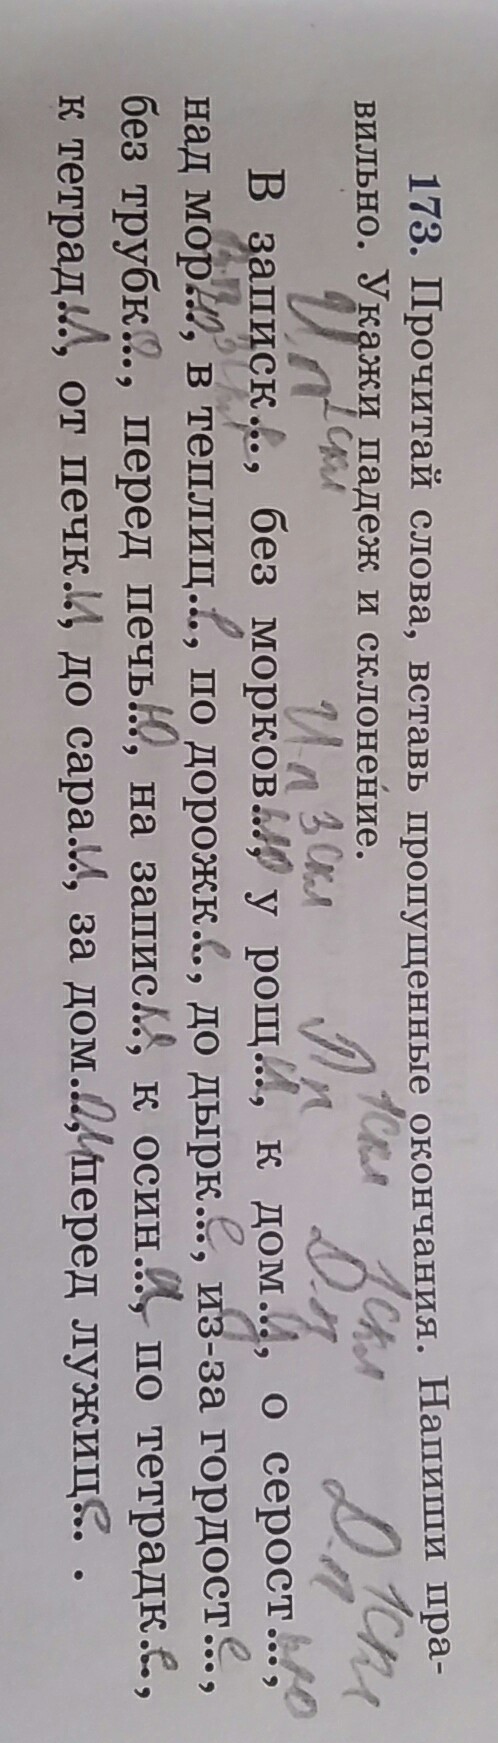 173. Прочитай слова, вставь пропущенные окончания. Напиши пра-
вильно. Укажи падеж и склоне́ние.
И.п 1скл И.п 3скл П.п 1скл Д.п 1скл Д.п 1скл
В записк...е, без морков...ью, у рощ...и, к дом...у, о серост...ью,
над мор...ю, в теплиц...е, по дорожк...е, до дырк...е, из-за гордост...е,
без трубк...е, перед печь...ю, на запис...ки, к осин...и, по тетрадк...е,
к тетрад...и, от печк...и, до сара...и, за дом...ом, перед лужиц...е.